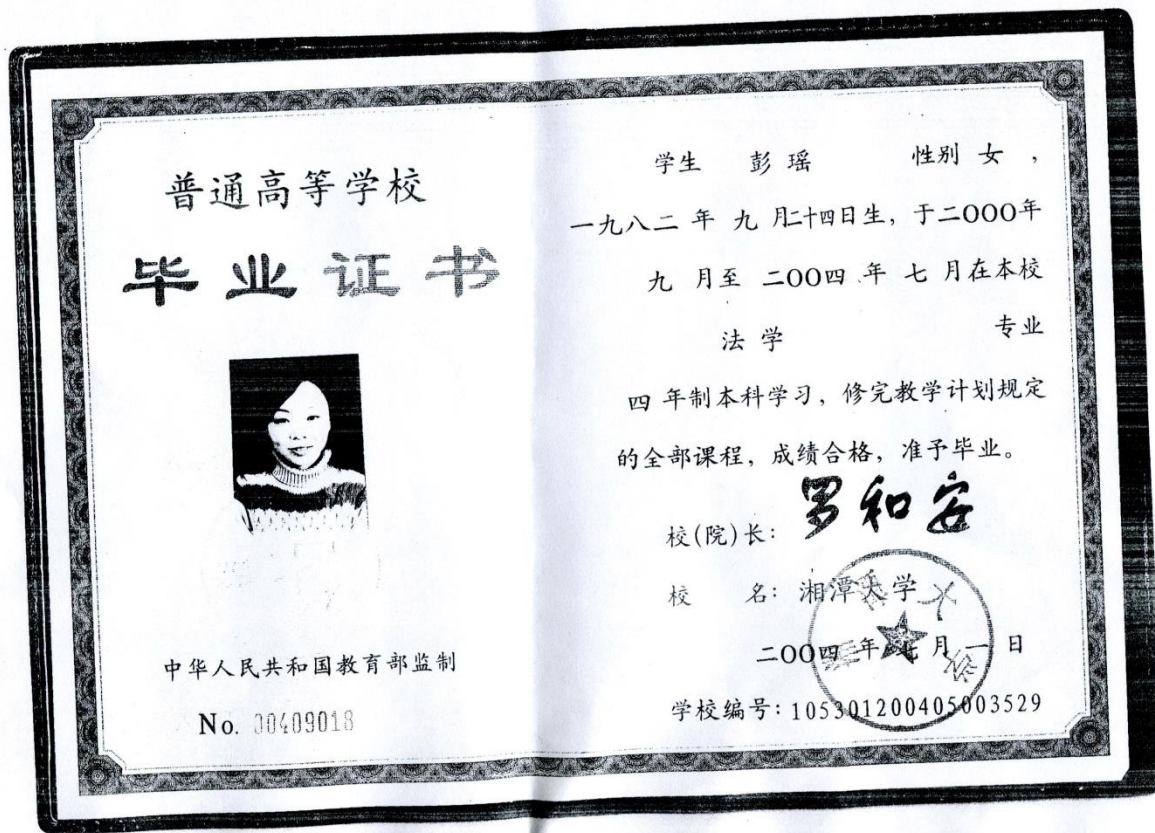 普通高等学校
毕业证书
中华人民共和国教育部监制
No. 00409018
学生 彭瑶 性别 女，
一九八二 年 九 月二十四日生，于二〇〇〇年
九 月至 二〇〇四 年 七 月在本校
法学 专业
四 年制本科学习，修完教学计划规定
的全部课程，成绩合格，准予毕业。
校(院)长: 罗和安
校 名: 湘潭大学
二〇〇四 年 七 月 一 日
学校编号: 105301200405003529